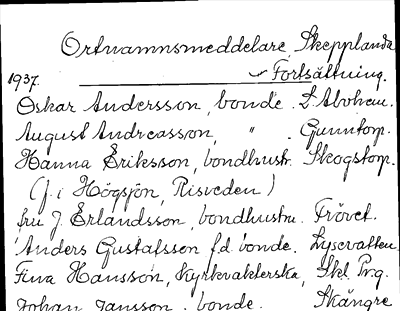 Ortnamnsmeddelare Skepplanda
Fortsättning.
1937.
Oskar Andersson, bonde. St. Alvhem.
August Andreasson, " . Gunntorp.
Hanna Eriksson, bondhustr. Skogstorp.
(f. i Högsjön, Risveden)
fru J. Erlandsson, bondhustru. Frövet.
Anders Gustafsson f.d. bonde. Lysevatten
Fina Hansson, kyrkvakterska, Skpl. Prg.
Johan Jansson . bonde. Skängre